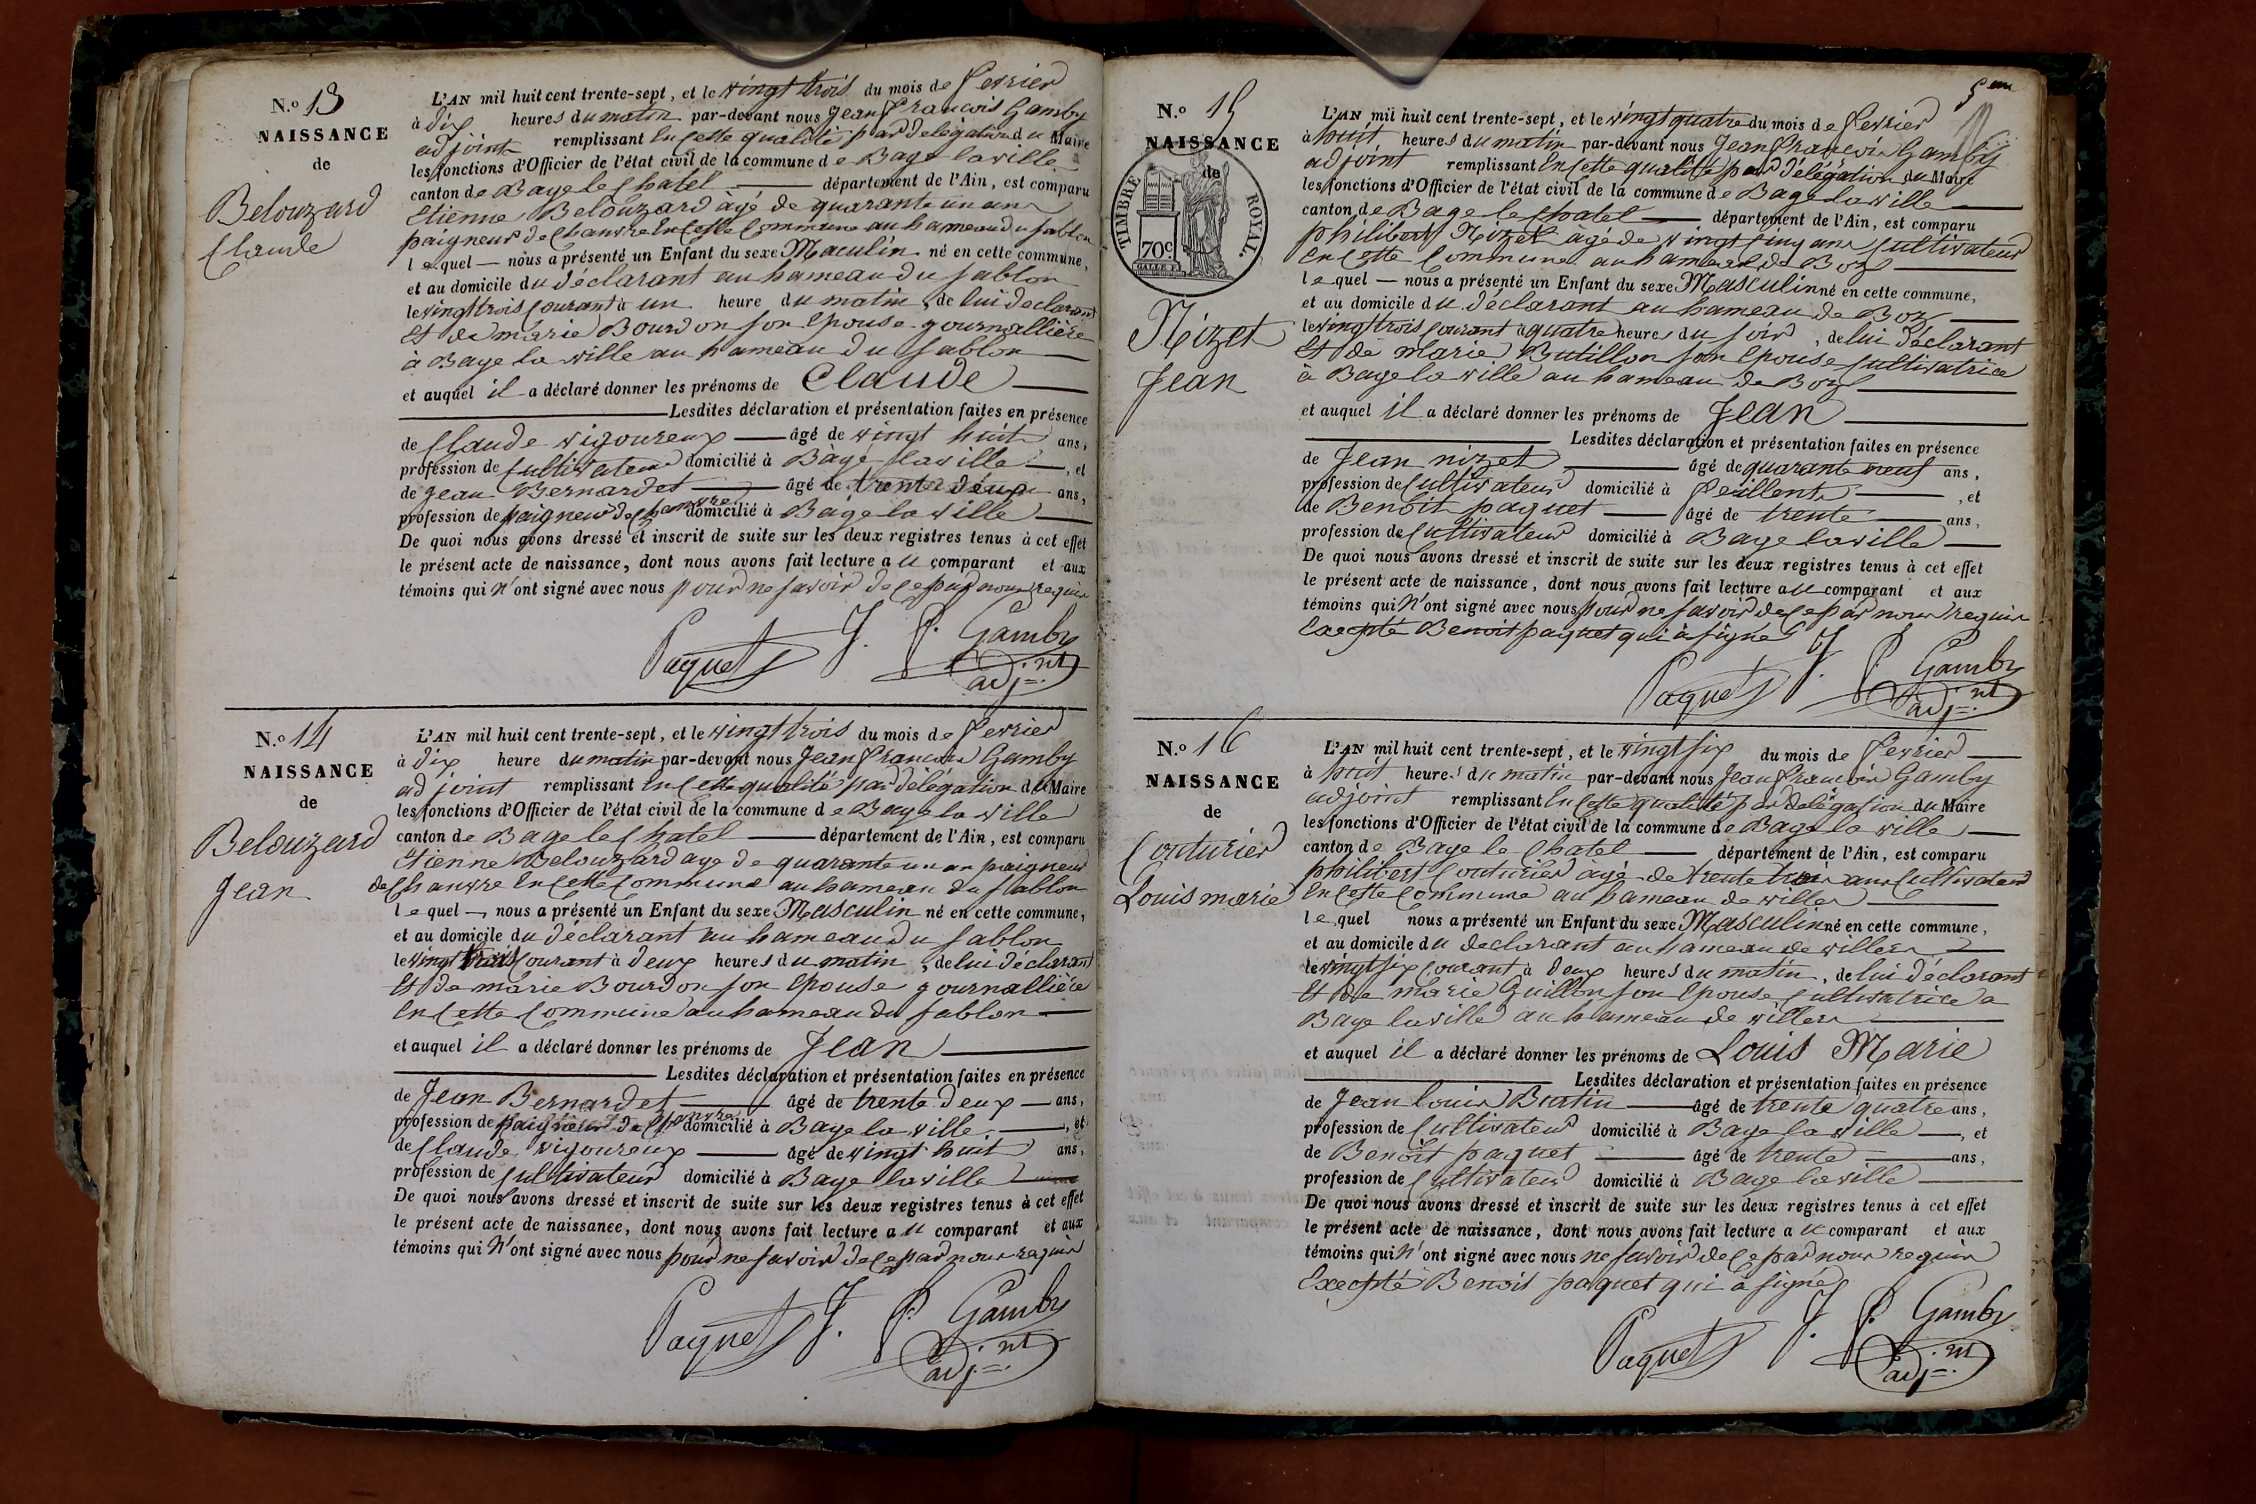 N.o 13
NAISSANCE
de
Belouzard
Claude
L'AN mil huit cent trente-sept, et le vingt trois du mois de fevrier
à dix heures du matin par-devant nous Jean francois Gamby
adjoint remplissant en cette qualité par délégation du Maire
les fonctions d'Officier de l'état civil de la commune de Bage la ville
canton de Bage le Chatel département de l'Ain, est comparu
Etienne Belouzard agé de quarante un ans
paigneur de Chanvre en cette Commune au hameau du sablon
lequel nous a présenté un Enfant du sexe Maculin né en cette commune,
et au domicile du déclarant au hameau du sablon
le vingt trois courant à un heure du matin, de lui déclarant
et de marie Bourdon son epouse journallière
à Bage la ville au hameau du sablon
et auquel il a déclaré donner les prénoms de Claude
Lesdites déclaration et présentation faites en présence
de Claude vigoureux âgé de vingt huit ans,
profession de Cultivateur domicilié à Bage la ville, et
de Jean Bernardet âgé de trente deux ans,
profession de paigneur de chanvre domicilié à Bage la ville
De quoi nous avons dressé et inscrit de suite sur les deux registres tenus à cet effet
le présent acte de naissance, dont nous avons fait lecture au comparant et aux
témoins qui n'ont signé avec nous pour ne savoir de ce par nous requis
Paquet J. F. Gamby
adj.nt
N.o 14
NAISSANCE
de
Belouzard
Jean
L'AN mil huit cent trente-sept, et le vingt trois du mois de fevrier
à dix heure du matin par-devant nous Jean francois Gamby
adjoint remplissant en cette qualité par délégation du Maire
les fonctions d'Officier de l'état civil de la commune de Bage la ville
canton de Bage le Chatel département de l'Ain, est comparu
Etienne Belouzard age de quarante un an paigneur
de Chanvre en cette Commune au hameau du sablon
lequel nous a présenté un Enfant du sexe Masculin né en cette commune,
et au domicile du déclarant au hameau du sablon
le vingt trois courant à deux heures du matin, de lui déclarant
et de marie Bourdon son epouse journallière
en cette Commune au hameau du sablon
et auquel il a déclaré donner les prénoms de Jean
Lesdites déclaration et présentation faites en présence
de Jean Bernardet âgé de trente deux ans,
profession de paigneur de chanvre domicilié à Bage la ville, et
de Claude vigoureux âgé de vingt huit ans,
profession de Cultivateur domicilié à Bage la ville
De quoi nous avons dressé et inscrit de suite sur les deux registres tenus à cet effet
le présent acte de naissance, dont nous avons fait lecture au comparant et aux
témoins qui n'ont signé avec nous pour ne savoir de ce par nous requis
Paquet J. F. Gamby
adj.nt
5em
N.o 15
NAISSANCE
de
TIMBRE ROYAL.
70c
Nizet
Jean
L'AN mil huit cent trente-sept, et le vingt quatre du mois de fevrier
à huit heures du matin par-devant nous Jean francois Gamby
adjoint remplissant en cette qualité par délégation du Maire
les fonctions d'Officier de l'état civil de la commune de Bage la ville
canton de Bage le Chatel département de l'Ain, est comparu
philibert Nizet âgé de vingt cinq ans Cultivateur
en cette Commune au hameau de Boz
lequel nous a présenté un Enfant du sexe Masculin né en cette commune,
et au domicile du déclarant au hameau de Boz
le vingt trois courant à quatre heures du soir, de lui déclarant
et de marie Butillon son epouse Cultivatrice
à Bage la ville au hameau de Boz
et auquel il a déclaré donner les prénoms de Jean
Lesdites déclaration et présentation faites en présence
de Jean nizet âgé de quarante neuf ans,
profession de Cultivateur domicilié à feillent, et
de Benoit paquet âgé de trente ans,
profession de Cultivateur domicilié à Bage la ville
De quoi nous avons dressé et inscrit de suite sur les deux registres tenus à cet effet
le présent acte de naissance, dont nous avons fait lecture au comparant et aux
témoins qui n'ont signé avec nous pour ne savoir de ce par nous requis
Excepté Benoit paquet qui à signé
Paquet J. F. Gamby
adj.nt
N.o 16
NAISSANCE
de
Couturier
Louis marie
L'AN mil huit cent trente-sept, et le vingt six du mois de fevrier
à huit heures du matin par-devant nous Jean francois Gamby
adjoint remplissant en cette qualité par délégation du Maire
les fonctions d'Officier de l'état civil de la commune de Bage la ville
canton de Bage le Chatel département de l'Ain, est comparu
philibert Couturier agé de trente trois ans Cultivateur
en cette Commune au hameau de villers
lequel nous a présenté un Enfant du sexe Masculin né en cette commune,
et au domicile du declarant au hameau de villers
le vingt six courant à deux heures du matin, de lui déclarant
et de marie Guillon son epouse Cultivatrice a
Bage la ville au hameau de villers
et auquel il a déclaré donner les prénoms de Louis Marie
Lesdites déclaration et présentation faites en présence
de Jean louis Burtin âgé de trente quatre ans,
profession de Cultivateur domicilié à Bage la ville, et
de Benoit paquet âgé de trente ans,
profession de Cultivateur domicilié à Bage la ville
De quoi nous avons dressé et inscrit de suite sur les deux registres tenus à cet effet
le présent acte de naissance, dont nous avons fait lecture au comparant et aux
témoins qui n'ont signé avec nous ne savoir de ce par nous requis
Excepté Benoit paquet qui à signé
Paquet J. F. Gamby
adj.nt